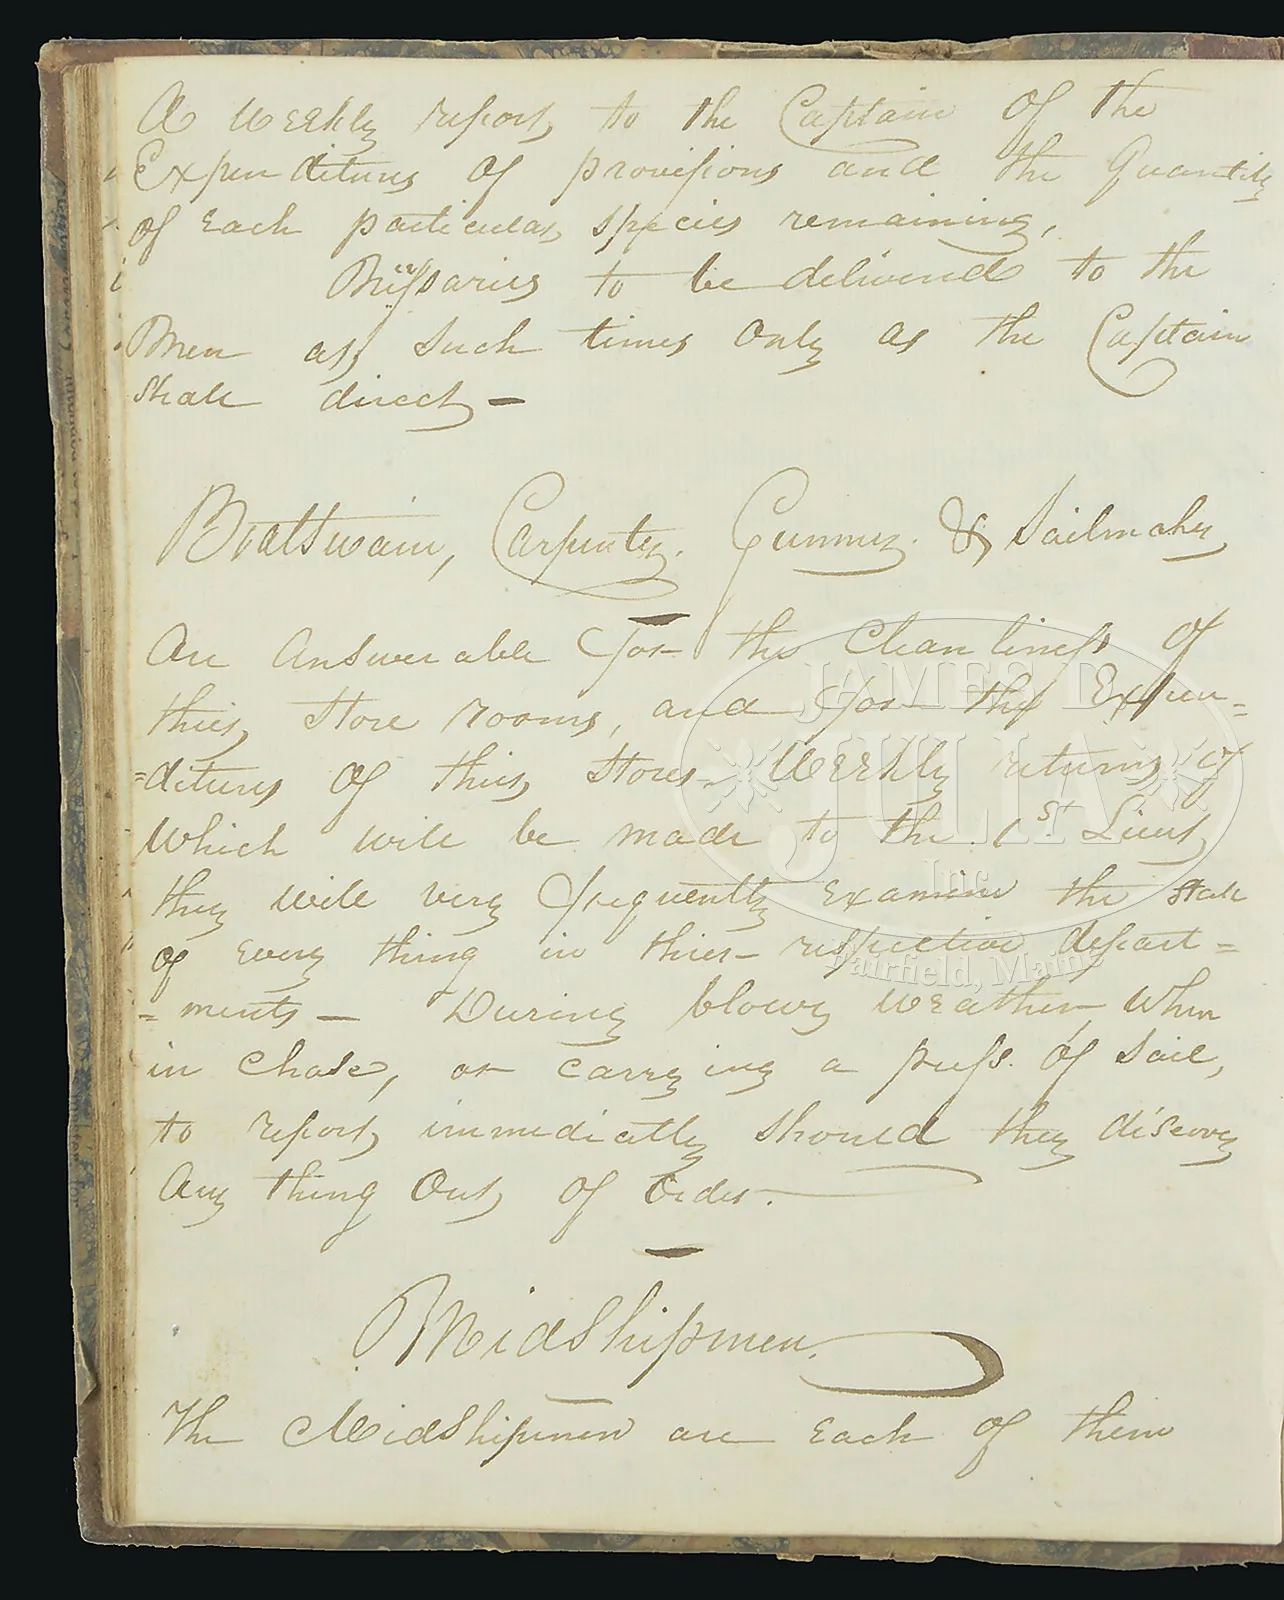 A Weekly report to the Captain of the
Expenditures of provisions and the Quantity
of Each particular species remaining,
Necessaries to be delivered to the
Men at such times only as the Captain
Shall direct —
Boatswain, Carpenter. Gunner. & Sailmaker
Are Answerable for the Cleanliness of
their Store rooms, and for the Expen=
=ditures of their Stores — Weekly returns of
Which will be made to the 1st. Lieut,
they will very frequently Examine the State
of every thing in their respective depart=
=ments — During blowy Weather, When
in Chase, or carrying a press. of Sail,
to report immediately should they discover
Any thing Out of Order.
Midshipmen.
The Midshipmen are Each of them
JAMES D.
JULIA
Inc.
Fairfield, Maine